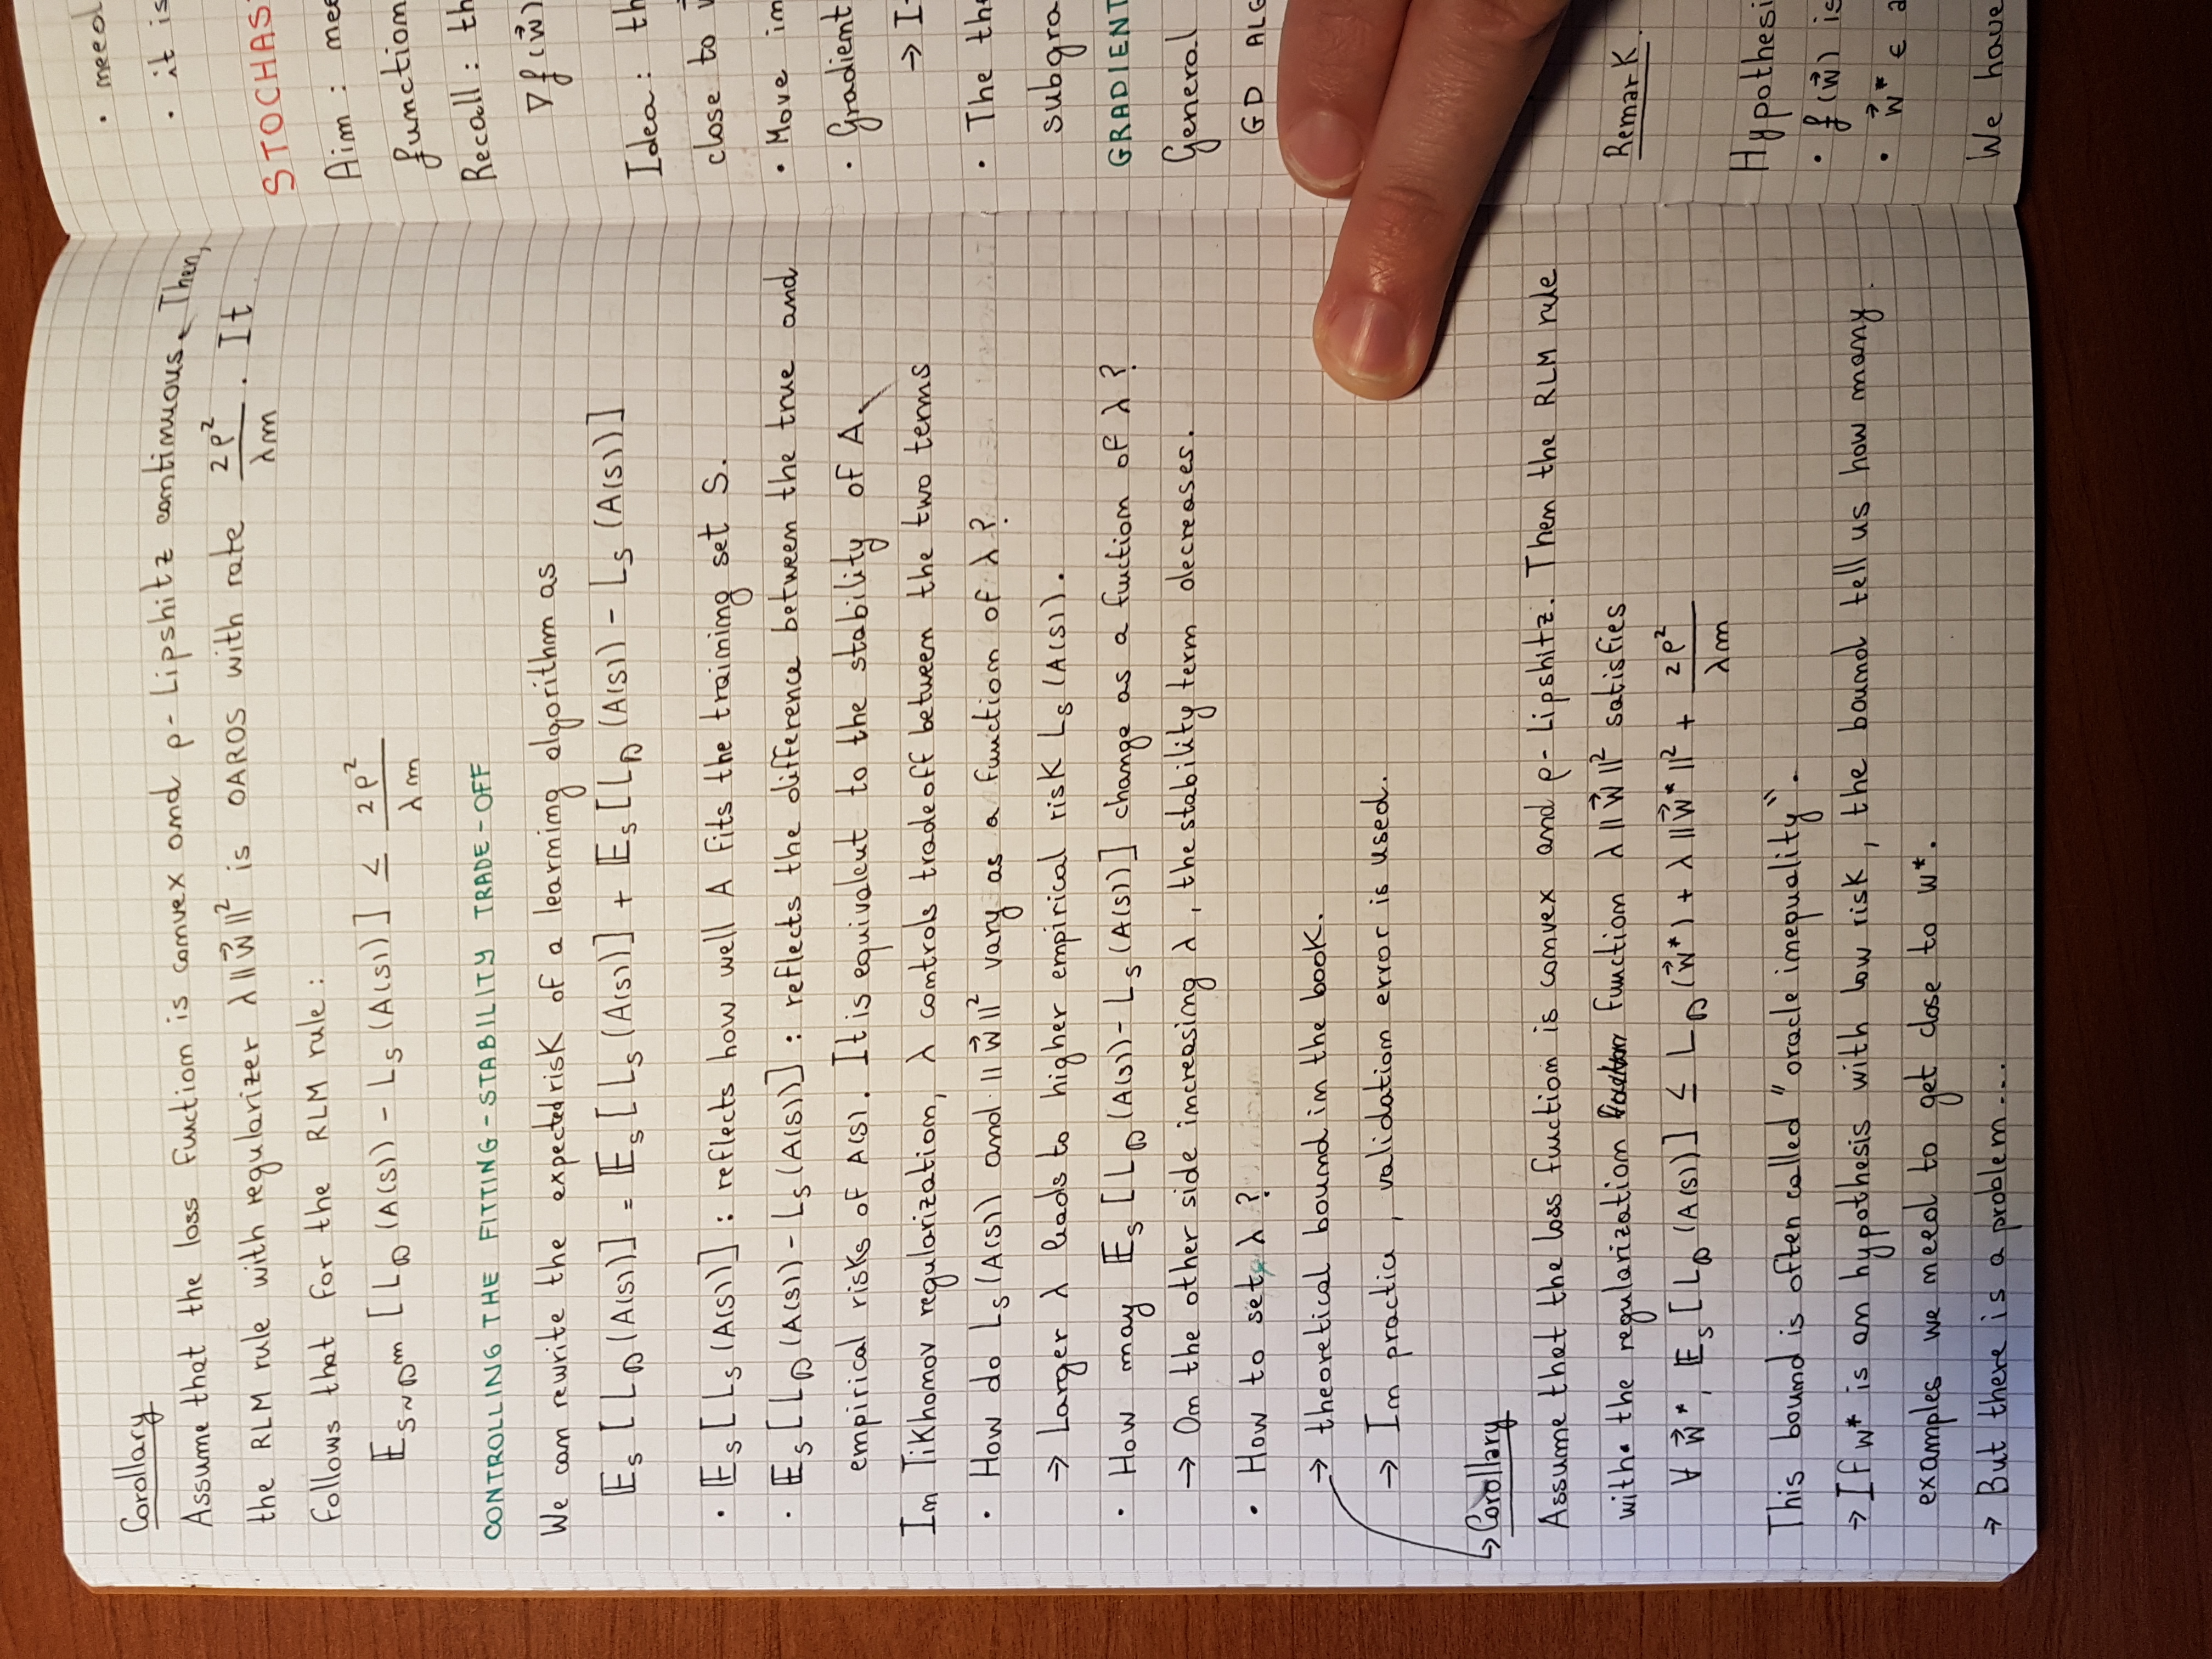 Corollary
Assume that the loss function is convex and ρ-Lipshitz continuous. Then,
the RLM rule with regularizer λ||w⃗||² is OAROS with rate 2ρ²/λm. It
follows that for the RLM rule:
𝔼_{S~𝒟^m} [L_𝒟(A(S)) - L_S(A(S))] ≤ 2ρ²/λm
CONTROLLING THE FITTING-STABILITY TRADE-OFF
We can rewrite the expected risk of a learning algorithm as
𝔼_S [L_𝒟(A(S))] = 𝔼_S [L_S(A(S))] + 𝔼_S [L_𝒟(A(S)) - L_S(A(S))]
· 𝔼_S [L_S(A(S))] : reflects how well A fits the training set S.
· 𝔼_S [L_𝒟(A(S)) - L_S(A(S))] : reflects the difference between the true and
empirical risks of A(S). It is equivalent to the stability of A.
In Tikhonov regularization, λ controls tradeoff between the two terms
· How do L_S(A(S)) and ||w⃗||² vary as a function of λ?
→ Larger λ leads to higher empirical risk L_S(A(S)).
· How may 𝔼_S [L_𝒟(A(S)) - L_S(A(S))] change as a fuction of λ?
→ On the other side increasing λ, the stability term decreases.
· How to set λ?
→ theoretical bound in the book.
→ In practice, validation error is used.
↳ Corollary
Assume that the loss fuction is convex and ρ-Lipshitz. Then the RLM rule
with the regularization function λ||w⃗||² satisfies
∀ w⃗*, 𝔼_S [L_𝒟(A(S))] ≤ L_𝒟(w⃗*) + λ||w⃗*||² + 2ρ²/λm
This bound is often called "oracle inequality".
→ If w* is an hypothesis with low risk, the bound tell us how many
examples we need to get close to w*.
→ But there is a problem...
· need
· it is
STOCHAS
Aim :
function
Recall : th
∇f(w⃗)
Idea : th
close to
· Move in
· Gradient
→ I
· The th
subgra
GRADIENT
General
GD ALG
Remark
Hypothesi
· f(w⃗) is
· w⃗* ∈
We have